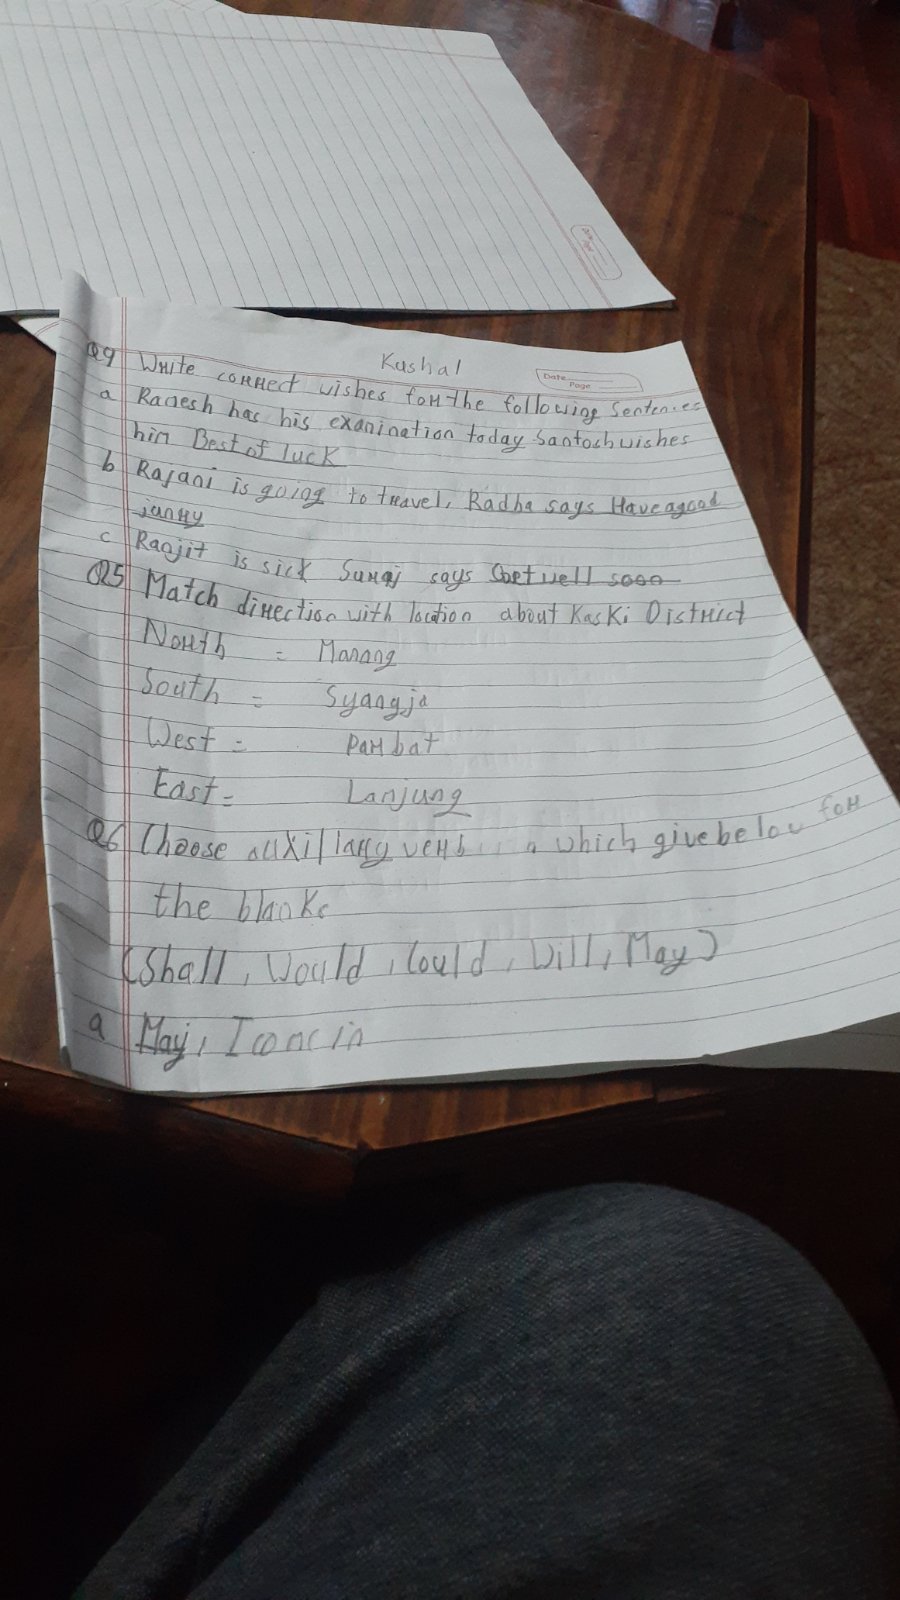 Kushal
Date
Page
Q4 Write correct wishes for the following Sentences
a Ramesh has his examination today Santosh wishes
him Best of luck
b Rajani is going to travel, Radha says Have a good
c Ranjit is sick Suraj says Get well soon
Q5 Match direction with location about Kaski District
North = Manang
South = Syangja
West = Parbat
East = Lamjung
Q6 Choose auxillary verb which give below for
the blanks
(Shall, Would, Could, Will, May)
a May, I come in